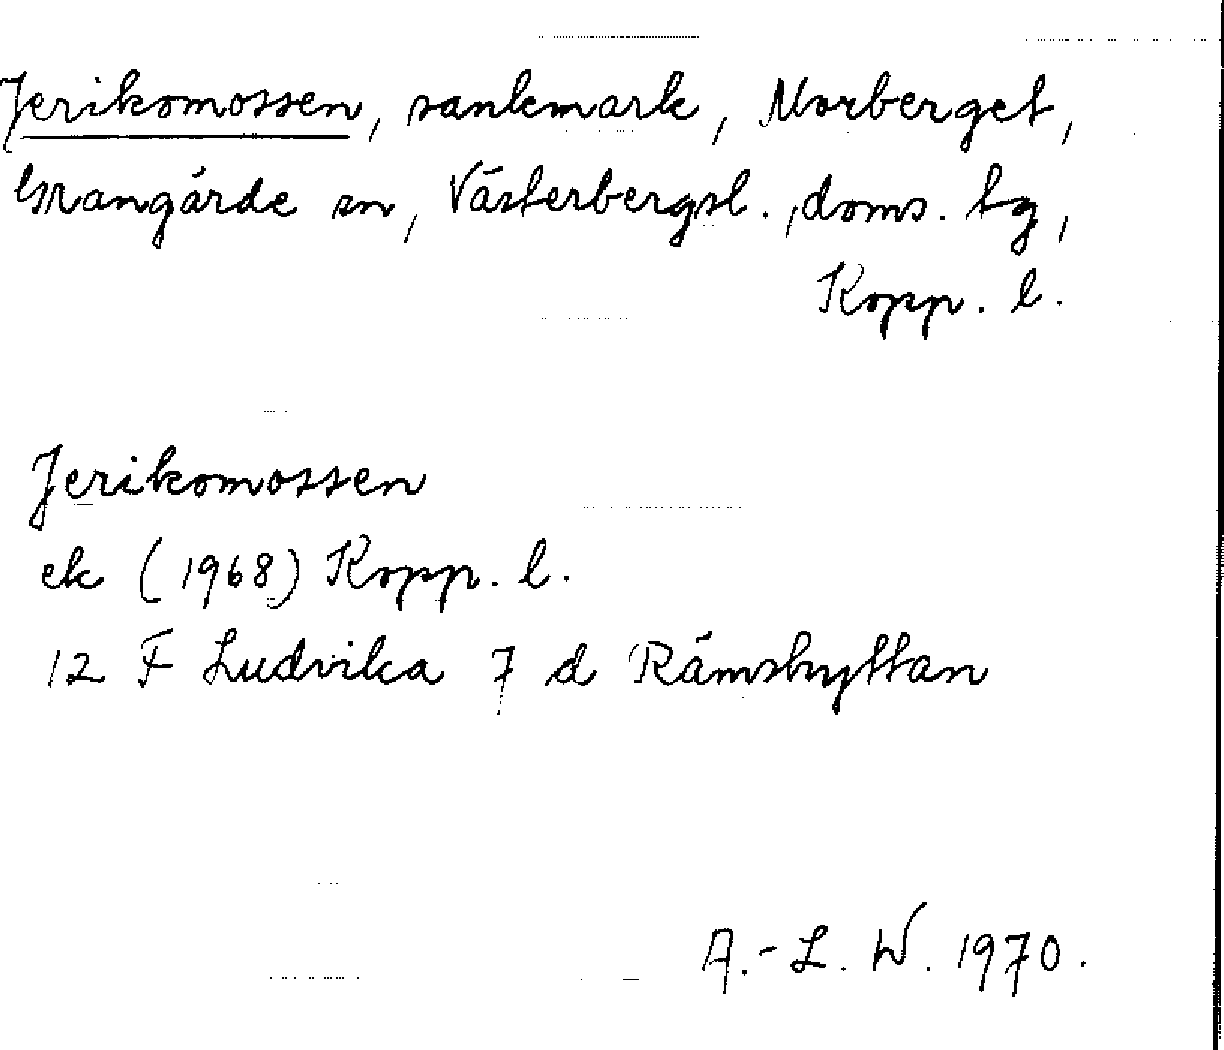 Jerikomossen, sankmark, Norberget,
Grangärde sn, Västerbergsl., doms. tg,
Kopp. l.
Jerikomossen
ek (1968) Kopp. l.
12 F Ludvika 7 d Rämshyttan
A.-L. W. 1970.